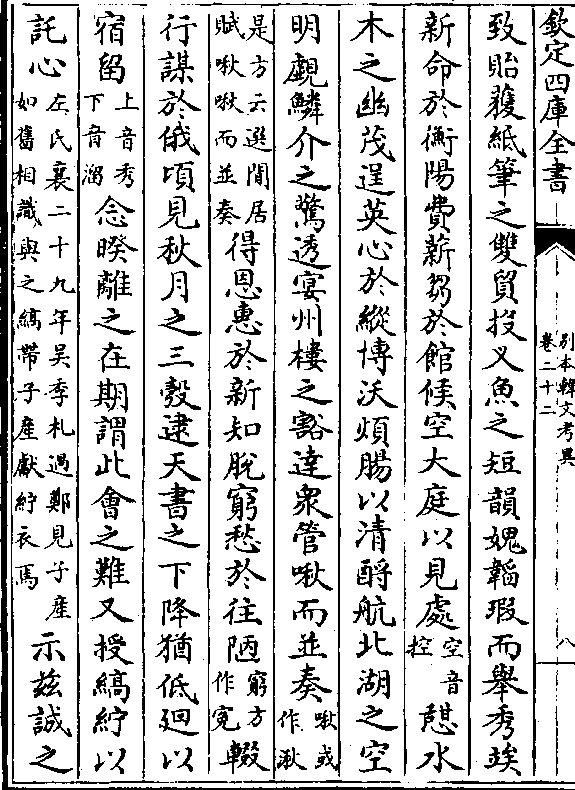 欽定四庫全書
別本韓文考異
卷二十二
八
致貽獲紙筆之雙貿投乂魚之短韻媿韜瑕而舉秀竢
新命於衡陽費薪芻於館候空大庭以見處空音控憇水
木之幽茂逞英心於縱博沃煩腸以清酹航北湖之空
明覷鱗介之驚透宴州樓之豁達衆管啾而並奏啾或作湫
是方云選閒居賦啾啾而並奏得恩惠於新知脫窮愁於往陋窮方作寃輟
行謀於俄頃見秋月之三彀逮天書之下降猶低迴以
宿留上音秀下音溜念暌離之在期謂此會之難又授縞紵以
託心左氏襄二十九年吳季札過鄭見子産如舊相識與之縞帶子産獻紵衣焉示兹誠之